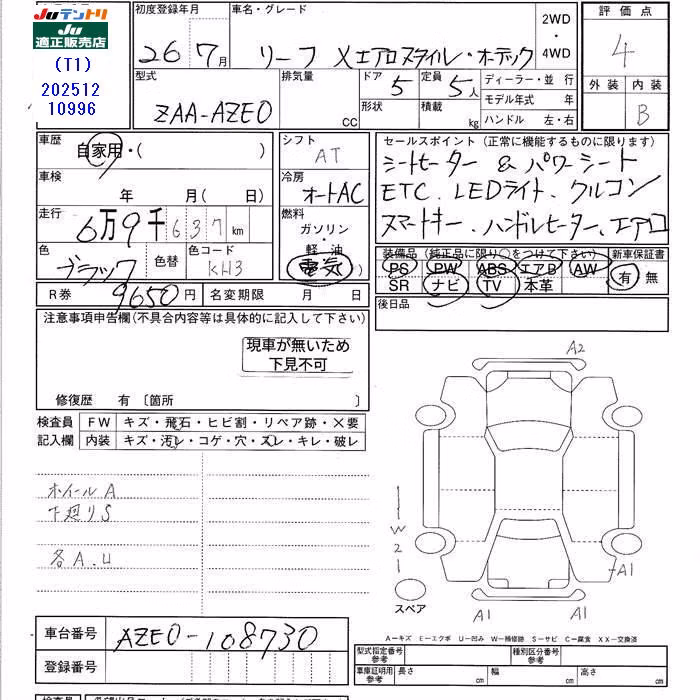 JUテントリ
JU
適正販売店
(T1)
202512
10996
初度登録年月
26 7月
車名・グレード
リーフ Xエアロスタイル・オーテック
2WD
・
4WD
評価点
4
型式
ZAA-AZE0
排気量
CC
ドア
5
定員
5人
形状
積載
kg
ディーラー・並 行
モデル年式 年
ハンドル 左・右
外装 内装
B
車歴
自家用・( )
シフト
AT
車検
年 月( 日)
冷房
オートAC
走行
6万9千637km
燃料
ガソリン
・
軽 油
電気
色
ブラック
色替
色コード
KH3
R券 9650円
名変期限 月 日
セールスポイント(正常に機能するものに限ります)
シートヒーター & パワーシート
ETC、LEDライト、クルコン
スマートキー、ハンドルヒーター、エアロ
装備品(純正品に限り○をつけて下さい)
PS PW ABS エアB AW
SR ナビ TV 本革
新車保証書
有 無
後日品
注意事項申告欄(不具合内容等は具体的に記入して下さい)
現車が無いため
下見不可
修復歴 有〔箇所 〕
検査員
記入欄
FW キズ・飛石・ヒビ割・リペア跡・×要
内装 キズ・汚レ・コゲ・穴・スレ・キレ・破レ
ホイールA
下廻りS
各A.U
A2
W
2
A1
A1
A1
スペア
A−キズ E−エクボ U−凹み W−補修跡 S−サビ C−腐食 XX−交換済
車台番号
AZE0-108730
登録番号
型式指定番号
参考
種別区分番号
参考
車庫証明用
参考
長さ cm
幅 cm
高さ cm